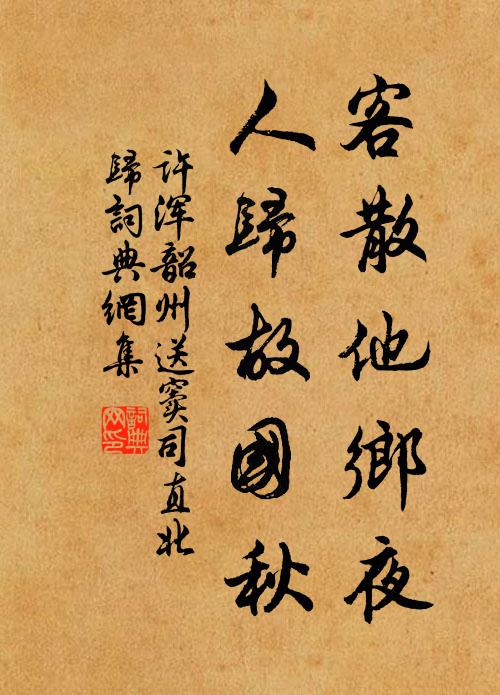 客散他鄉夜
人歸故國秋
许浑韶州送窦司直北
歸詞典網集
詞典
网印